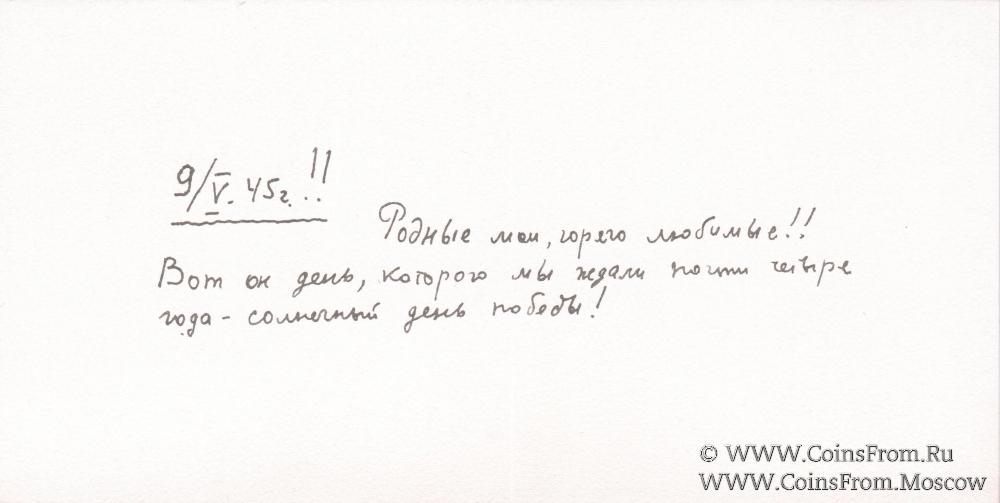 9/V. 45г..!!
Родные мои, горячо любимые!!
Вот он день, которого мы ждали почти четыре
года - солнечный день победы!
© WWW.CoinsFrom.Ru
WWW.CoinsFrom.Moscow